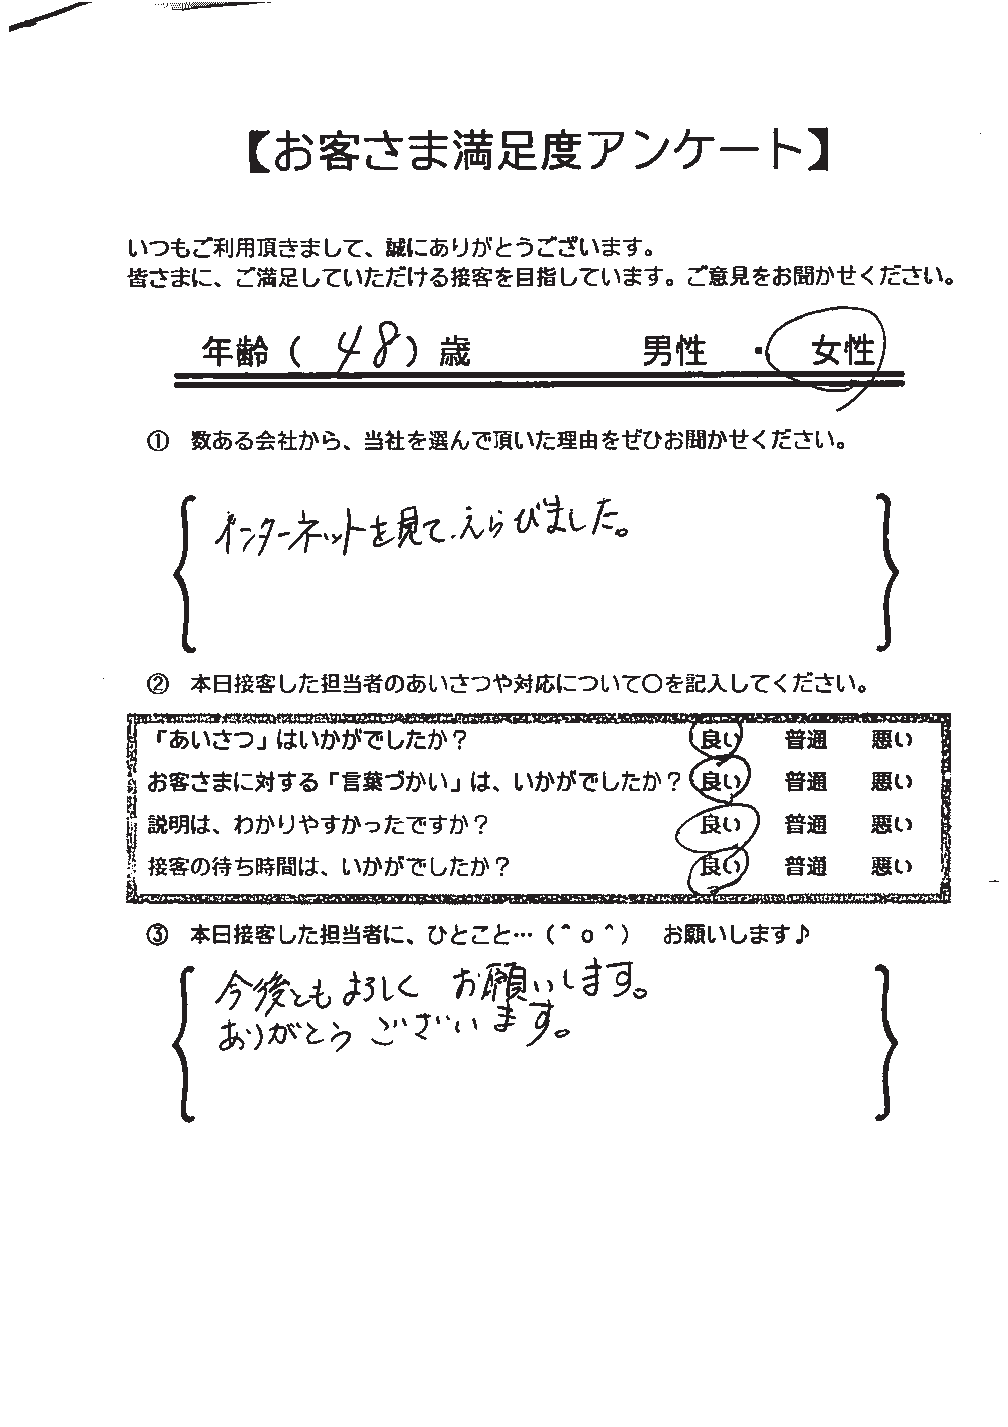 【お客さま満足度アンケート】
いつもご利用頂きまして、誠にありがとうございます。
皆さまに、ご満足していただける接客を目指しています。ご意見をお聞かせください。
年齢（ 48 ）歳 男性 ・ 女性
① 数ある会社から、当社を選んで頂いた理由をぜひお聞かせください。
インターネットを見て、えらびました。
② 本日接客した担当者のあいさつや対応について〇を記入してください。
「あいさつ」はいかがでしたか？ 良い 普通 悪い
お客さまに対する「言葉づかい」は、いかがでしたか？ 良い 普通 悪い
説明は、わかりやすかったですか？ 良い 普通 悪い
接客の待ち時間は、いかがでしたか？ 良い 普通 悪い
③ 本日接客した担当者に、ひとこと…（＾ｏ＾） お願いします♪
今後ともよろしく お願いします。
ありがとう ございます。